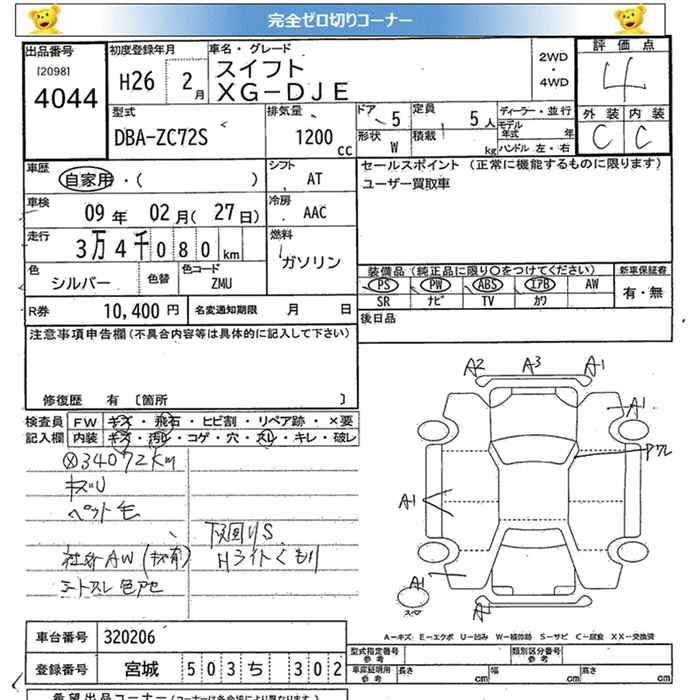 完全ゼロ切りコーナー
出品番号
[2098]
4044
初度登録年月
H26 2月
車名・グレード
スイフト
XG-DJE
2WD
・
4WD
評価点
4
外装 内装
C C
型式
DBA-ZC72S
排気量
1200 cc
ドア 5
定員 5人
形状 W
積載 kg
ディーラー・並行
モデル年式 年
ハンドル 左・右
車歴
自家用・( )
シフト
AT
車検
09年 02月(27日)
冷房
AAC
走行
3万4千080km
燃料
ガソリン
色
シルバー
色替
色コード
ZMU
R券 10,400円
名変通知期限 月 日
セールスポイント (正常に機能するものに限ります)
ユーザー買取車
装備品(純正品に限り○をつけてください)
PS PW ABS エアB AW
SR ナビ TV カワ
新車保証書
有・無
後日品
注意事項申告欄(不具合内容等は具体的に記入して下さい)
修復歴 有 [箇所 ]
検査員
記入欄
FW キズ・飛石・ヒビ割・リペア跡・×要
内装 キズ・汚レ・コゲ・穴・スレ・キレ・破レ
34072km
キズU
ペット毛
下回りS
社外AW(キズ有) Hライトくもり
シートスレ色アセ
A2 A3 A1
A1
Pワレ
A1
A1
スペア
A1
A-キズ E-エクボ U-凹み W-補修跡 S-サビ C-腐食 XX-交換済
車台番号 320206
登録番号 宮城 503 ち 302
型式指定番号
参考
類別区分番号
参考
車庫証明用
参考
長さ cm 幅 cm 高さ cm
希望出品コーナー